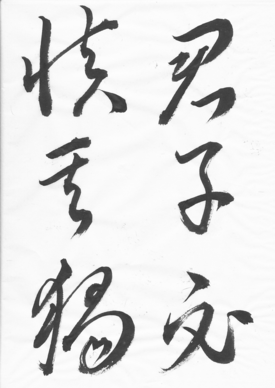 君子必
慎其獨